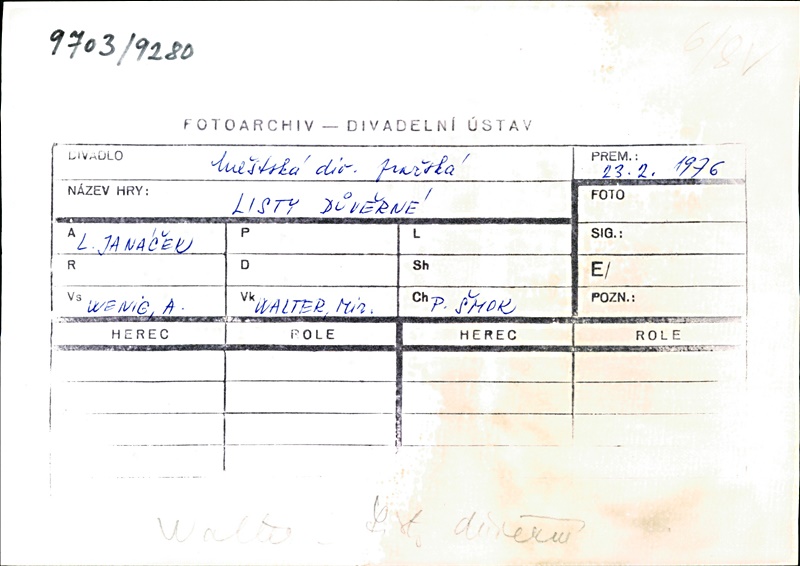 9703/9280
FOTOARCHIV — DIVADELNÍ ÚSTAV
DIVADLO Městská div. pražská PREM.: 23.2. 1976
NÁZEV HRY: LISTY DŮVĚRNÉ FOTO
A L. JANÁČEK P L SIG.:
R D Sh E/
Vs WENIG, A. Vk WALTER, Mir. Ch P. ŠMOK POZN.:
HEREC ROLE HEREC ROLE
Walter - Listy důvěrné